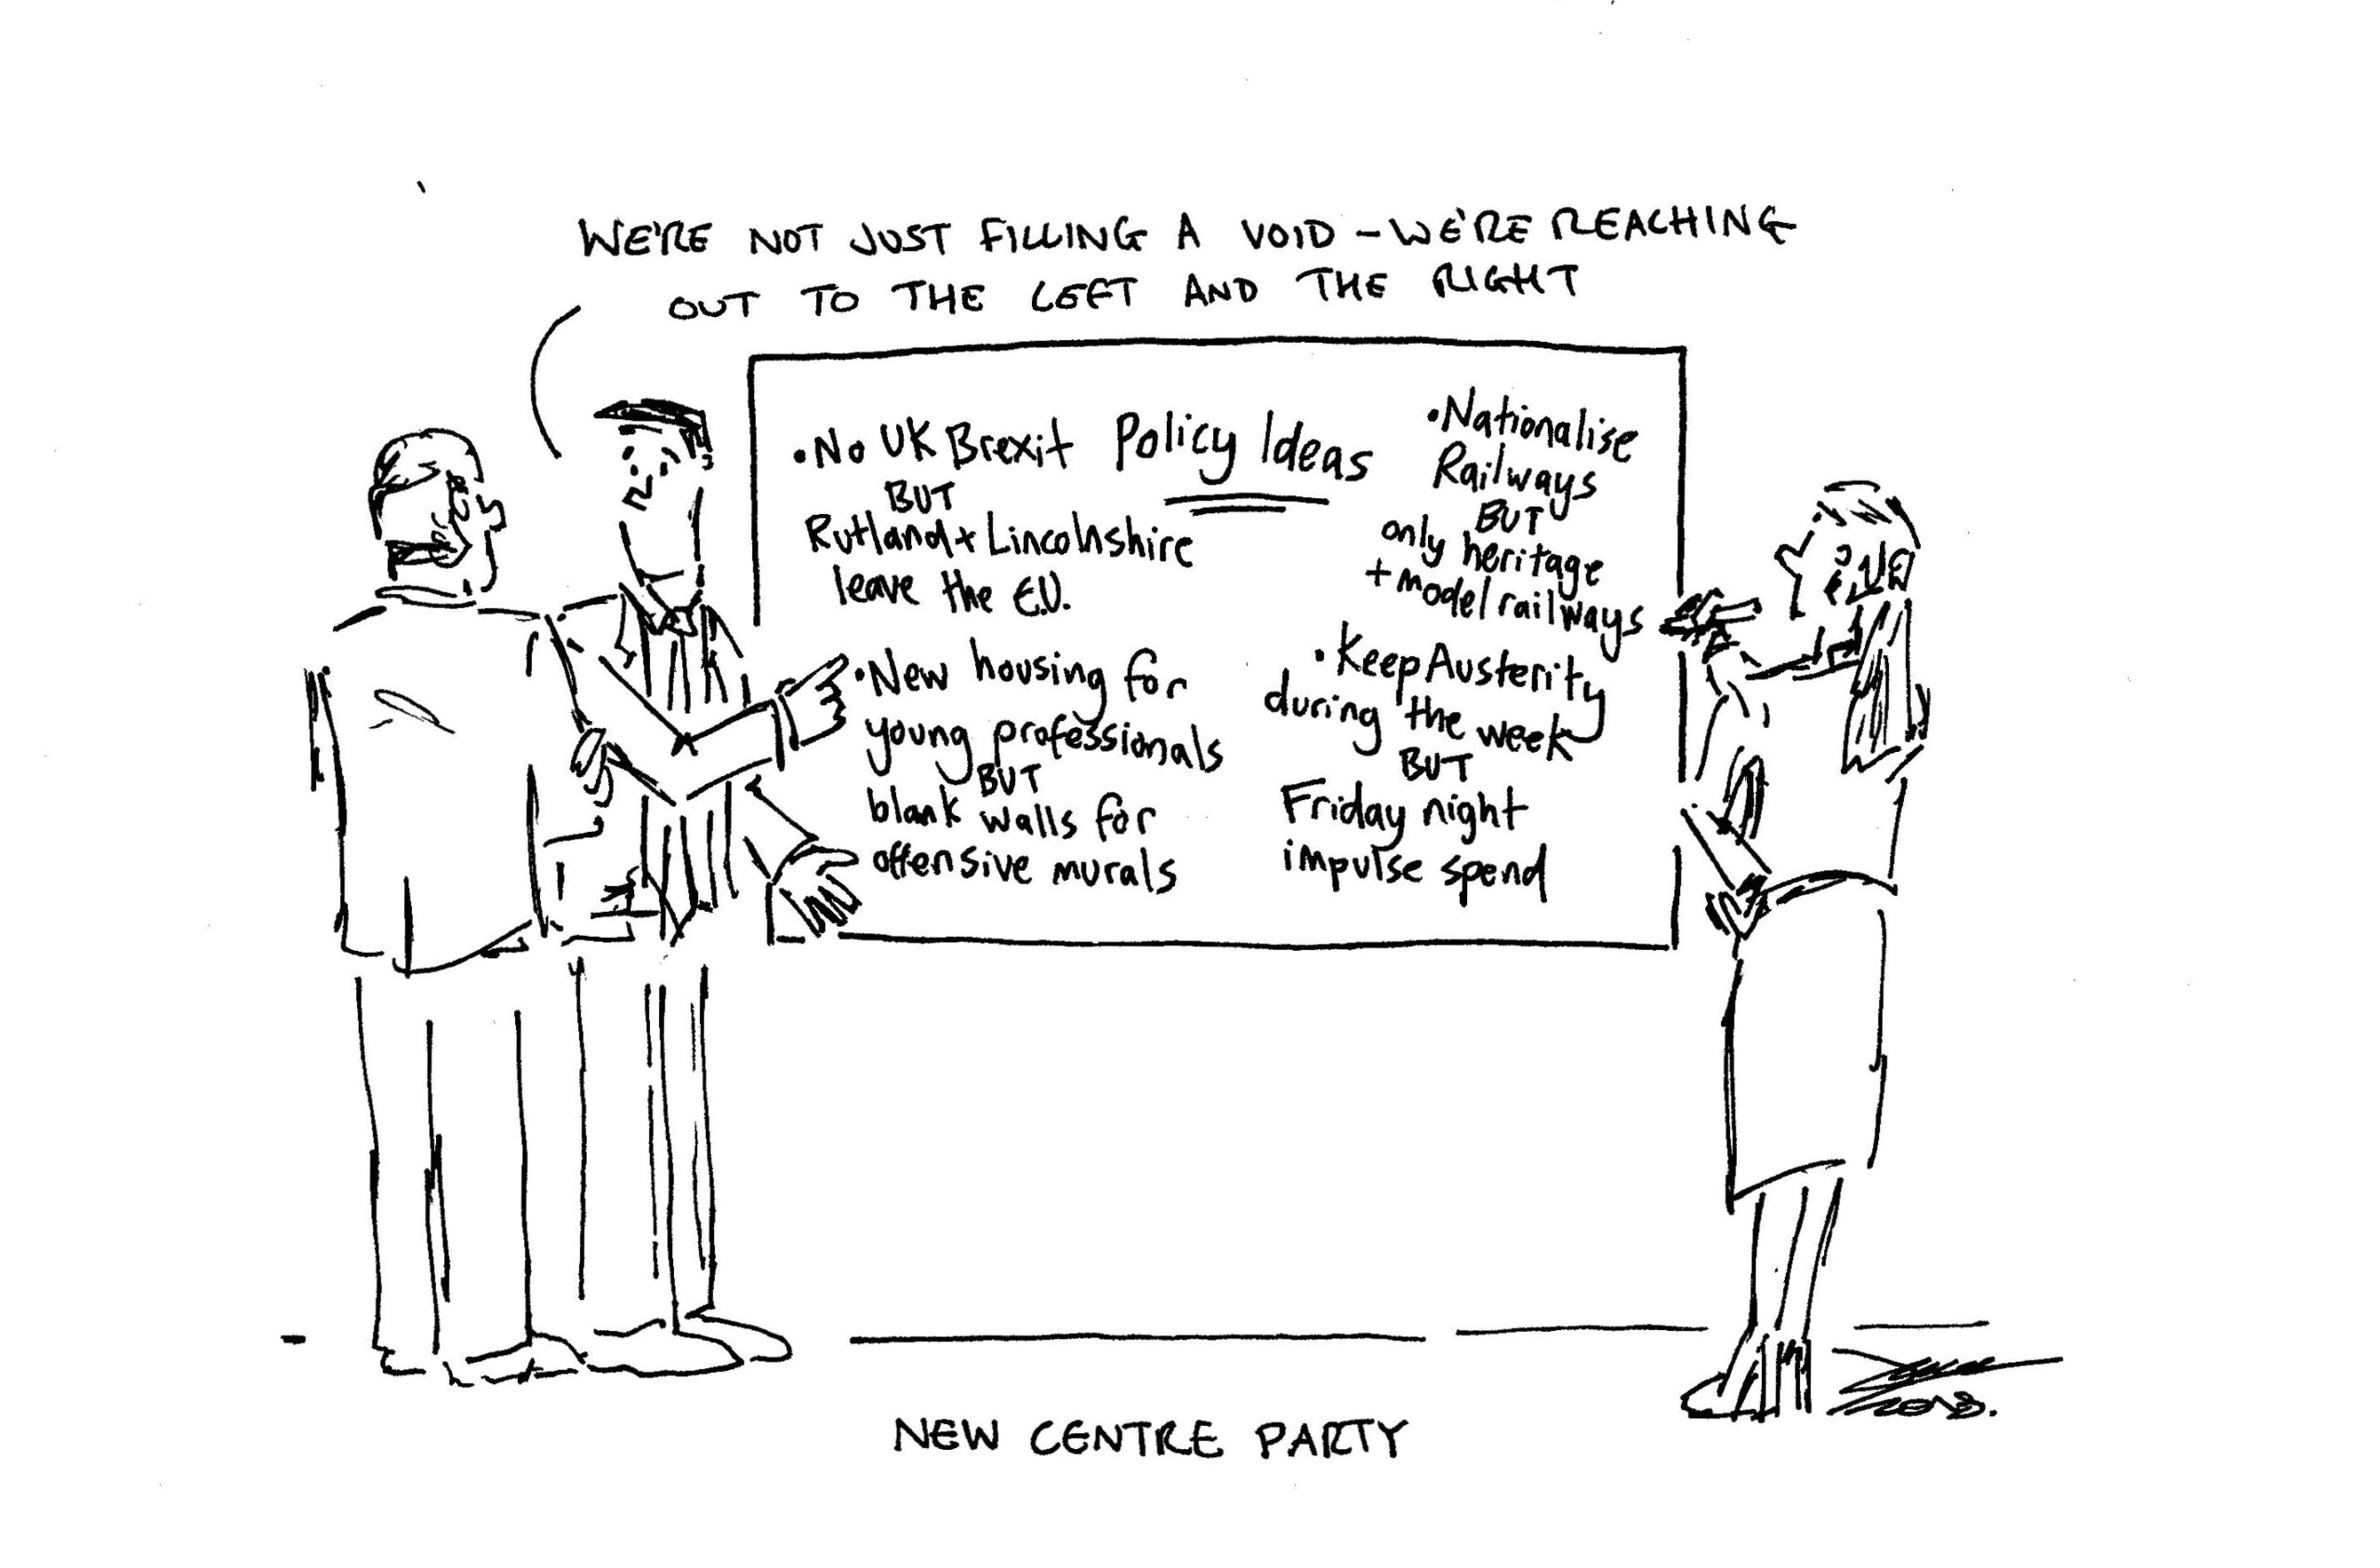 WE'RE NOT JUST FILLING A VOID – WE'RE REACHING
OUT TO THE LEFT AND THE RIGHT
Policy Ideas
•No UK Brexit
BUT
Rutland + Lincolnshire
leave the E.U.
•New housing for
young professionals
BUT
blank walls for
offensive murals
•Nationalise
Railways
BUT
only heritage
+ model railways
•Keep Austerity
during the week
BUT
Friday night
impulse spend
NEW CENTRE PARTY